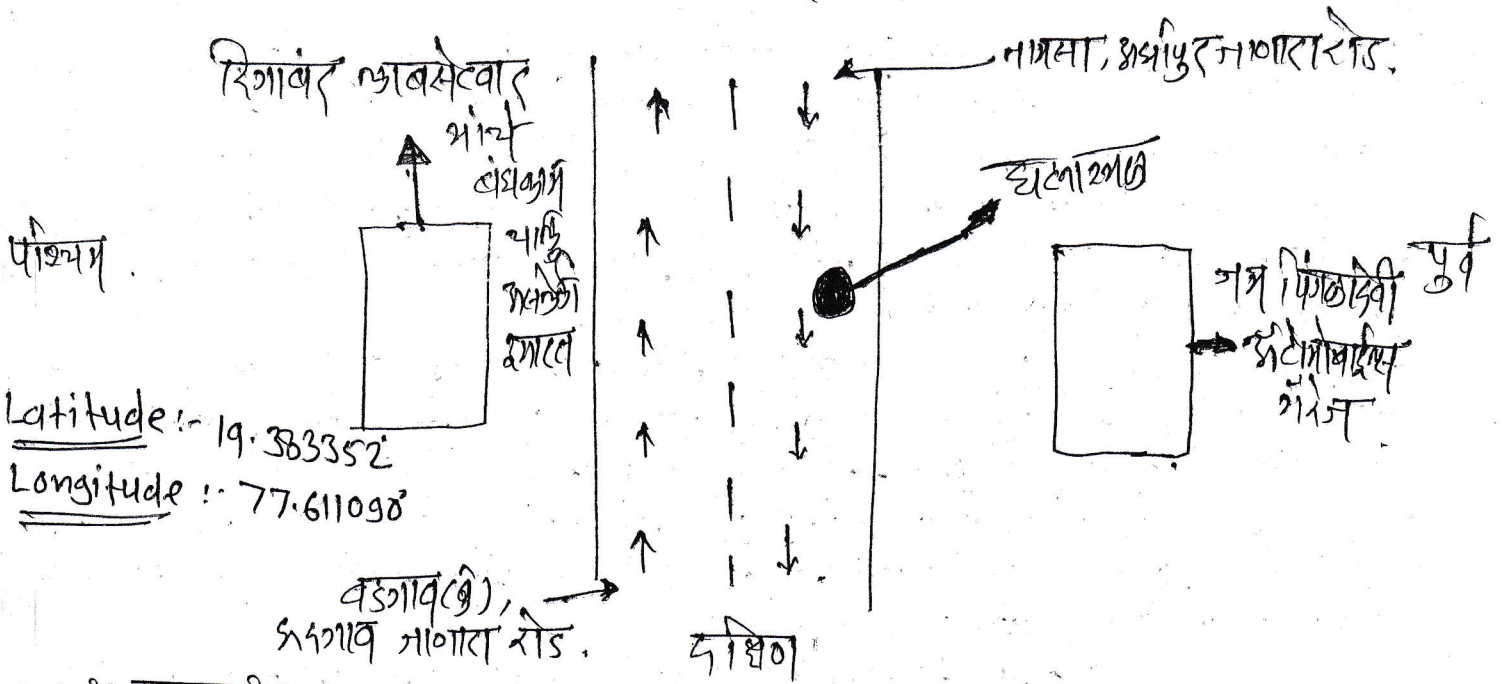 दिगांबर लाबसेटवार
यांचे
बंधकाम
चालु
असलेली
इमारत
तामसा, अर्धापुर जाणारा रोड.
घटनास्थळ
पश्चिम.
पुर्व
जय पिंगळादेवी
ॲटोमोबाईल्स
गॅरेज.
Latitude :- 19.383352°
Longitude :- 77.611090°
वडगाव(बु),
हदगाव जाणारा रोड.
दक्षिण